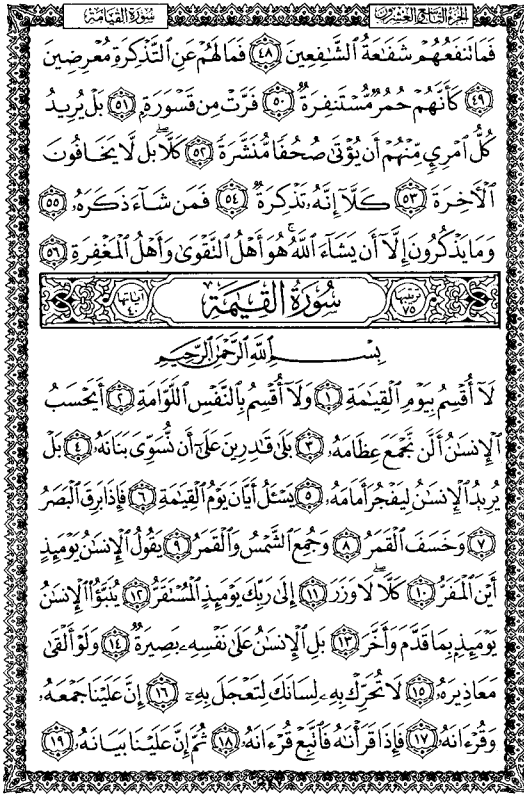 الجزء التاسع والعشرون سورة القيامة
فَمَا تَنفَعُهُمْ شَفَٰعَةُ ٱلشَّٰفِعِينَ ٤٨ فَمَا لَهُمْ عَنِ ٱلتَّذْكِرَةِ مُعْرِضِينَ
٤٩ كَأَنَّهُمْ حُمُرٌ مُّسْتَنفِرَةٌ ٥٠ فَرَّتْ مِن قَسْوَرَةٍۭ ٥١ بَلْ يُرِيدُ
كُلُّ ٱمْرِئٍ مِّنْهُمْ أَن يُؤْتَىٰ صُحُفًا مُّنَشَّرَةً ٥٢ كَلَّا ۖ بَل لَّا يَخَافُونَ
ٱلْءَاخِرَةَ ٥٣ كَلَّآ إِنَّهُۥ تَذْكِرَةٌ ٥٤ فَمَن شَآءَ ذَكَرَهُۥ ٥٥
وَمَا يَذْكُرُونَ إِلَّآ أَن يَشَآءَ ٱللَّهُ ۚ هُوَ أَهْلُ ٱلتَّقْوَىٰ وَأَهْلُ ٱلْمَغْفِرَةِ ٥٦
ترتيبها ٧٥ سُورَةُ ٱلْقِيَٰمَةِ آياتها ٤٠
بِسْمِ ٱللَّهِ ٱلرَّحْمَٰنِ ٱلرَّحِيمِ
لَآ أُقْسِمُ بِيَوْمِ ٱلْقِيَٰمَةِ ١ وَلَآ أُقْسِمُ بِٱلنَّفْسِ ٱللَّوَّامَةِ ٢ أَيَحْسَبُ
ٱلْإِنسَٰنُ أَلَّن نَّجْمَعَ عِظَامَهُۥ ٣ بَلَىٰ قَٰدِرِينَ عَلَىٰٓ أَن نُّسَوِّىَ بَنَانَهُۥ ٤ بَلْ
يُرِيدُ ٱلْإِنسَٰنُ لِيَفْجُرَ أَمَامَهُۥ ٥ يَسْـَٔلُ أَيَّانَ يَوْمُ ٱلْقِيَٰمَةِ ٦ فَإِذَا بَرِقَ ٱلْبَصَرُ
٧ وَخَسَفَ ٱلْقَمَرُ ٨ وَجُمِعَ ٱلشَّمْسُ وَٱلْقَمَرُ ٩ يَقُولُ ٱلْإِنسَٰنُ يَوْمَئِذٍ
أَيْنَ ٱلْمَفَرُّ ١٠ كَلَّا لَا وَزَرَ ١١ إِلَىٰ رَبِّكَ يَوْمَئِذٍ ٱلْمُسْتَقَرُّ ١٢ يُنَبَّؤُا۟ ٱلْإِنسَٰنُ
يَوْمَئِذٍۭ بِمَا قَدَّمَ وَأَخَّرَ ١٣ بَلِ ٱلْإِنسَٰنُ عَلَىٰ نَفْسِهِۦ بَصِيرَةٌ ١٤ وَلَوْ أَلْقَىٰ
مَعَاذِيرَهُۥ ١٥ لَا تُحَرِّكْ بِهِۦ لِسَانَكَ لِتَعْجَلَ بِهِۦٓ ١٦ إِنَّ عَلَيْنَا جَمْعَهُۥ
وَقُرْءَانَهُۥ ١٧ فَإِذَا قَرَأْنَٰهُ فَٱتَّبِعْ قُرْءَانَهُۥ ١٨ ثُمَّ إِنَّ عَلَيْنَا بَيَانَهُۥ ١٩